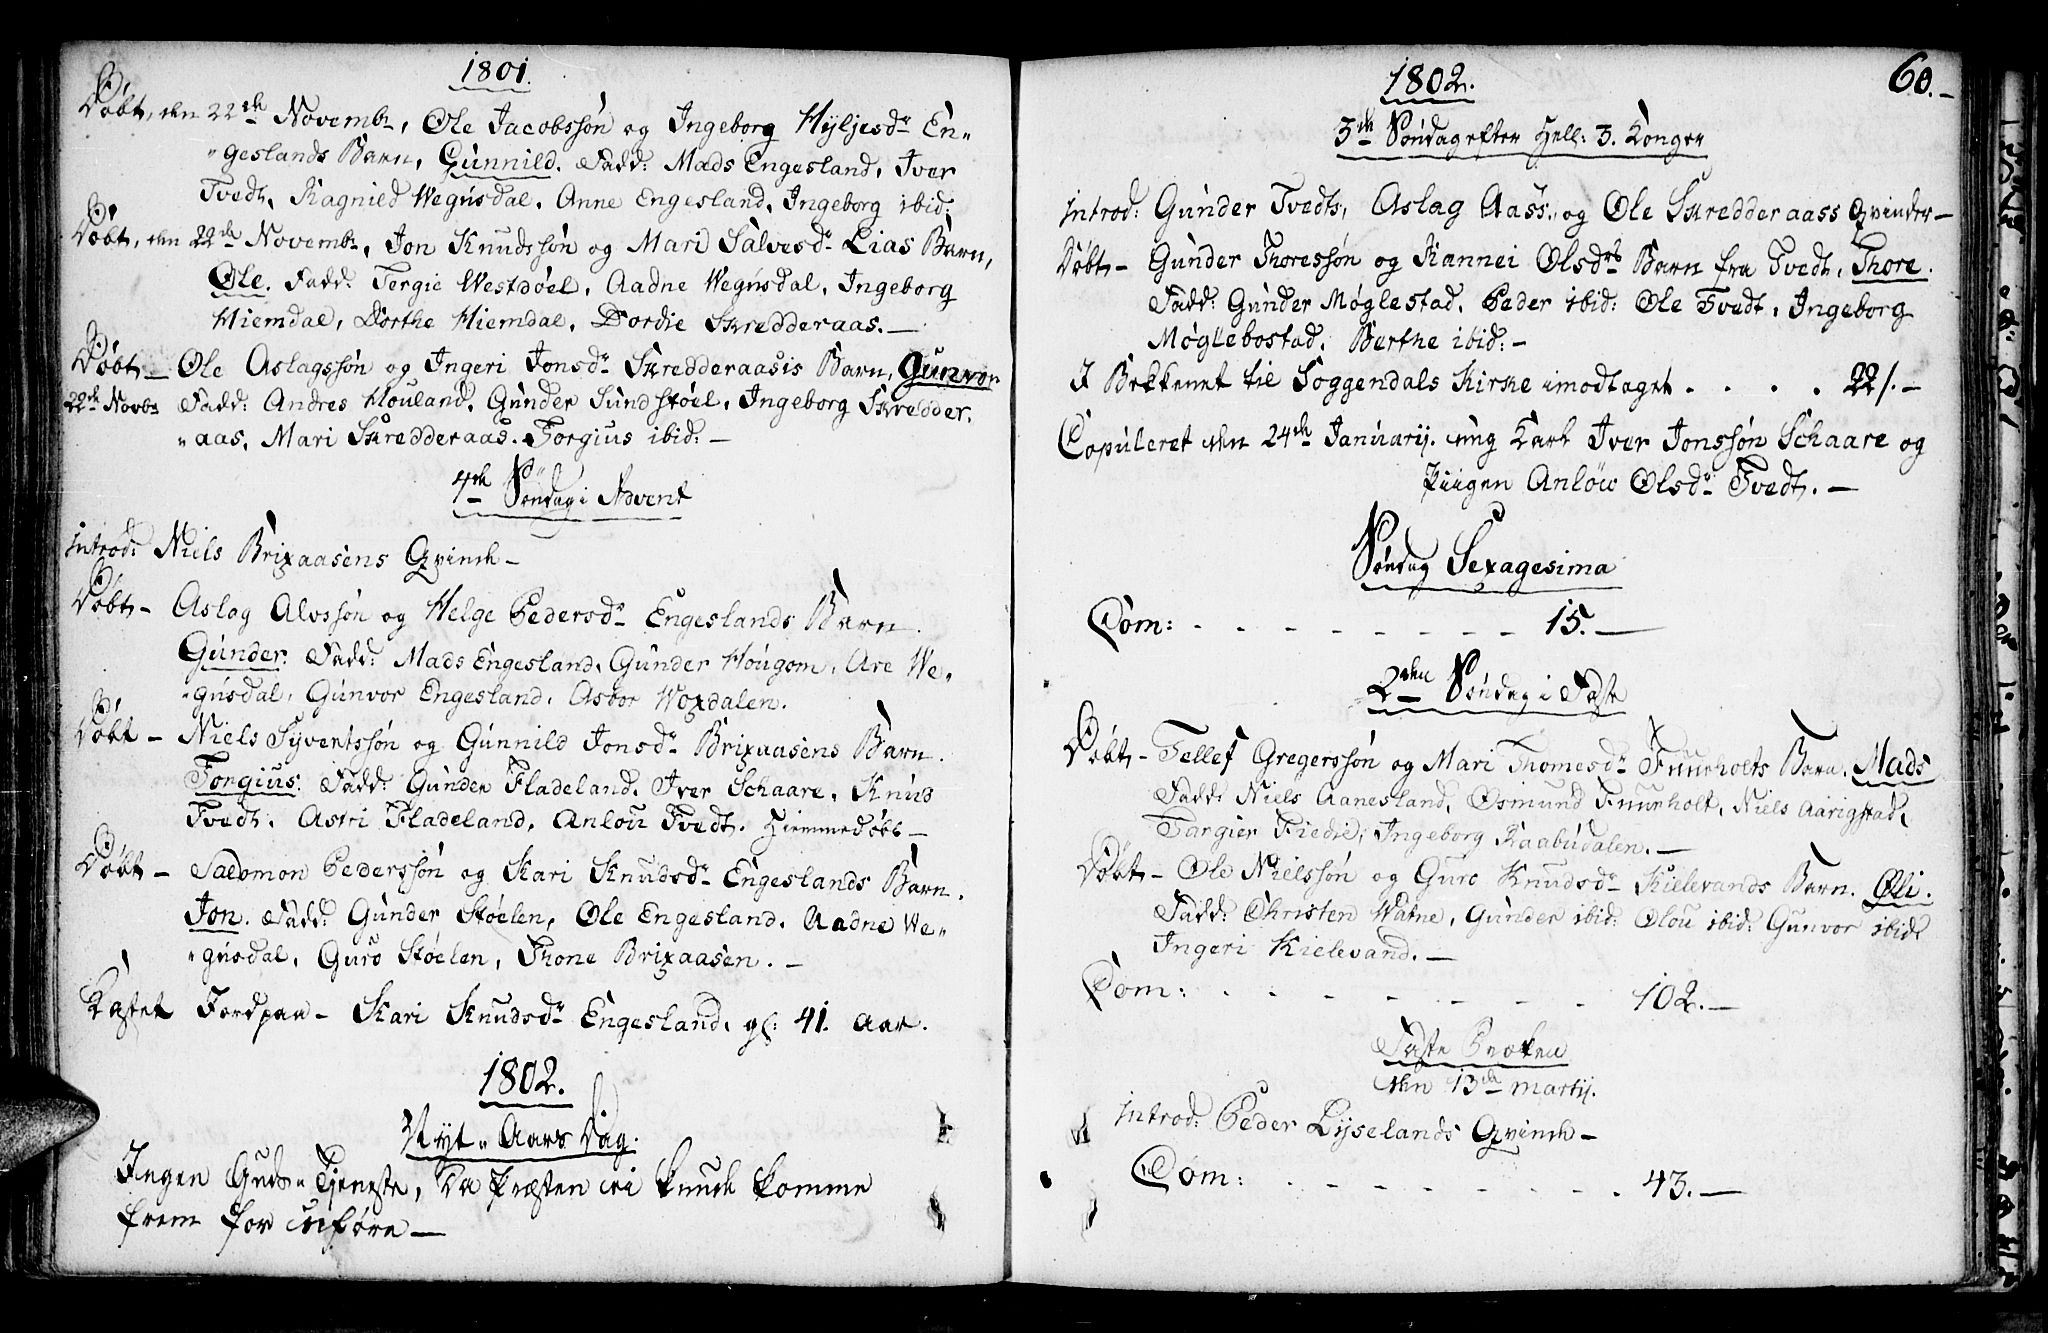 1801.
Døbt, den 22de Novembr, Ole Jacobssøn og Ingeborg Hyljesdr En-
geslands Barn, Gunnild. Fadd: Mads Engesland, Iver
Tvedt, Ragnild Wegusdal, Anne Engesland, Ingeborg ibid:
Døbt, den 22de Novembr, Jon Knudssøn og Mari Salvesdr Lias Barn,
Ole. Fadd: Tergie Westøel, Aadne Wegusdal, Ingeborg
Hiemdal, Dorthe Hiemdal, Dordie Skredderaas.—
Døbt — Ole Aslagssøn og Ingeri Jonsdr Skredderaasis Barn, Gunvor
22de Novbr Fadd: Andres Houland, Gunder Sundstøel, Ingeborg Skredder-
aas, Mari Skredderaas. Torgius ibid: —
4de Søndag i Advent
Introd: Niels Brixaasens Qvinde —
Døbt — Aslag Alvssøn og Helge Pedersdr Engeslands Barn.
Gunder. Fadd: Mads Engesland, Gunder Hougom, Are We-
gusdal, Gunvor Engesland, Asbor Woxdalen.
Døbt — Niels Syvertssøn og Gunnild Jonsdr Brixaasens Barn.
Torgius. Fadd: Gunder Fladeland, Iver Schaare, Knud
Tvedt, Astri Fladeland, Anlou Tvedt. Hiemmedøbt —
Døbt — Salomon Pederssøn og Kari Knudsdr Engeslands Barn.
Jon. Fadd: Gunder Støelen, Ole Engesland, Aadne We-
gusdal, Guro Støelen, Thone Brixaasen. —
Kastet Jord paa — Kari Knudsdr Engesland, gl: 41. Aar.
1802.
Nyt-Aars Dag.
Ingen Guds-Tjeneste, da Præsten ei kunde komme
frem for uføre —
1802.
60.—
3de Søndag efter Hell: 3. Konger
Introd: Gunder Tvedts, Aslag Aass, og Ole Skredderaass Qvinder —
Døbt — Gunder Thoressøn og Rannei Olsdrs Barn fra Tvedt, Thore.
Fadd: Gunder Møglestad, Peder ibid: Ole Tvedt, Ingeborg
Møglebostad, Berthe ibid: —
I Bekkenet til Soggendals Kirke imodtaget . . . . 22/. —
Copuleret den 24de Januarij. ung Karl Iver Jonssøn Schaare og
Piigen Anlöw Olsdr Tvedt. —
Søndag Sexagesima
Com: - - - - - - - - - 15. —
2den Søndag i Faste
Døbt — Tellef Gregerssøn og Mari Thomesdr Fuurholts Barn. Mads
Fadd: Niels Aanesland, Osmund Fuurholt, Niels Aarigstad,
Targier Fiedie, Ingeborg Raabudalen. —
Døbt — Ole Nielssøn og Guro Knudsdr Kielevands Barn. Oli.
Fadd: Christen Watne, Gunder ibid: Olou ibid: Gunvor ibid:
Ingeri Kielevand. —
Com: - - - - - - - - 102. —
Faste Præken
den 13de martij.
Introd: Peder Lyselands Qvinde —
Com: - - - - - - - - 43. —